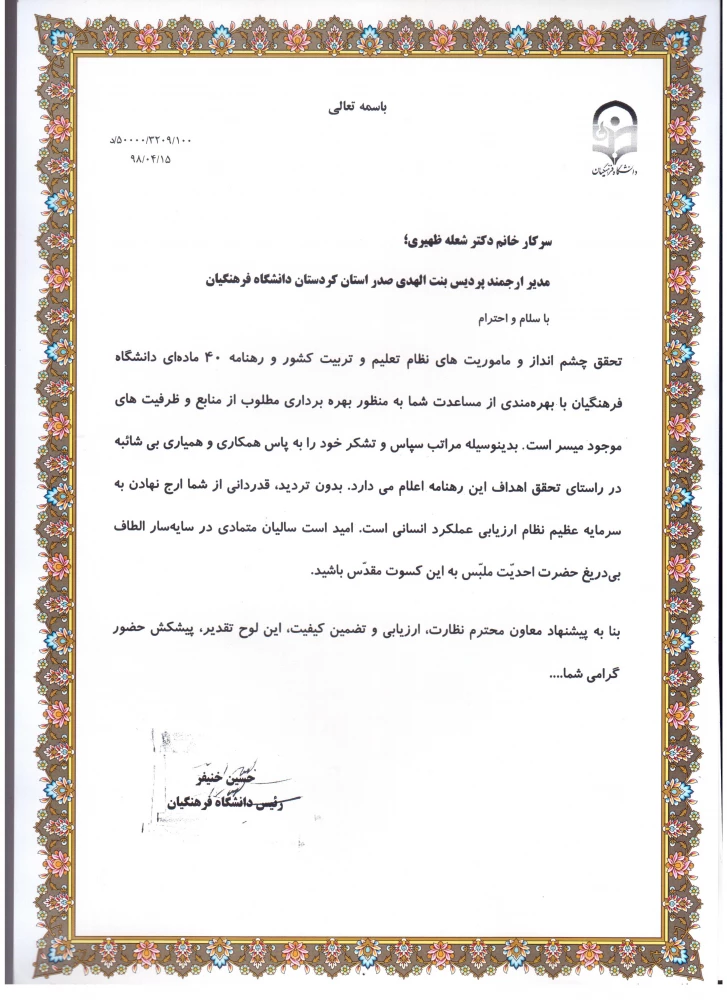 باسمه تعالی
۵۰۰۰۰/۳۲۰۹/۱۰۰/د
۹۸/۰۴/۱۵
دانشگاه فرهنگیان
سرکار خانم دکتر شعله ظهیری؛
مدیر ارجمند پردیس بنت الهدی صدر استان کردستان دانشگاه فرهنگیان
با سلام و احترام
تحقق چشم انداز و ماموریت های نظام تعلیم و تربیت کشور و رهنامه ۴۰ ماده‌ای دانشگاه
فرهنگیان با بهره‌مندی از مساعدت شما به منظور بهره برداری مطلوب از منابع و ظرفیت های
موجود میسر است. بدینوسیله مراتب سپاس و تشکر خود را به پاس همکاری و همیاری بی شائبه
در راستای تحقق اهداف این رهنامه اعلام می دارد. بدون تردید، قدردانی از شما ارج نهادن به
سرمایه عظیم نظام ارزیابی عملکرد انسانی است. امید است سالیان متمادی در سایه‌سار الطاف
بی‌دریغ حضرت احدیّت ملبّس به این کسوت مقدّس باشید.
بنا به پیشنهاد معاون محترم نظارت، ارزیابی و تضمین کیفیت، این لوح تقدیر، پیشکش حضور
گرامی شما....
حسین خنیفر
رئیس دانشگاه فرهنگیان